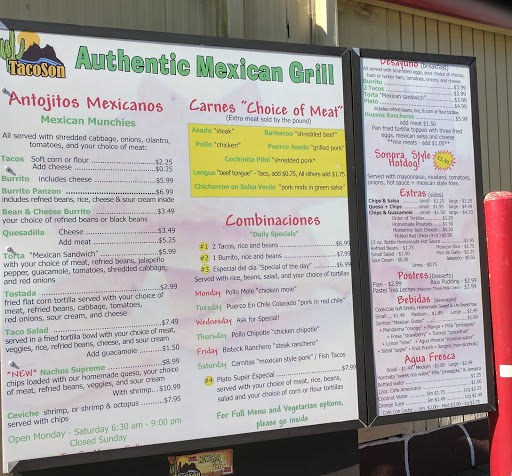 TacoSon
Authentic Mexican Grill
Antojitos Mexicanos
Mexican Munchies
All served with shredded cabbage, onions, cilantro,
tomatoes, and your choice of meat:
Tacos Soft corn or flour $2.25
Add cheese $0.25
Burrito includes cheese $5.99
Burrito Panzon $6.99
includes refried beans, rice, cheese & sour cream inside
Bean & Cheese Burrito $3.49
your choice of refried beans or black beans
Quesadilla Cheese $3.49
Add meat $5.25
Torta "Mexican Sandwich" $5.99
with your choice of meat, refried beans, jalapeño
pepper, guacamole, tomatoes, shredded cabbage,
and red onions
Tostada $2.99
fried flat corn tortilla served with your choice of
meat, refried beans, cabbage, tomatoes,
red onions, sour cream, and cheese
Taco Salad $7.49
served in a fried tortilla bowl with your choice of meat,
veggies, rice, refried beans, cheese, and sour cream
Add guacamole $1.50
*NEW* Nachos Supreme $8.99
chips loaded with our homemade queso, your choice
of meat, refried beans, veggies, and sour cream
With shrimp $10.99
Ceviche shrimp, or shrimp & octopus $7.95
served with chips
Open Monday - Saturday 6:30 am - 9:00 pm
Closed Sunday
Carnes "Choice of Meat"
(Extra meat sold by the pound)
Asada "steak" Barbacoa "shredded beef"
Pollo "chicken" Puerco Asado "grilled pork"
Cochinita Pibil "shredded pork"
Lengua "beef tongue" - Taco, add $0.75, All others add $1.75
Chicharron en Salsa Verde "pork rinds in green salsa"
Combinaciones
"Daily Specials"
#1 2 Tacos, rice and beans $6.99
#2 1 Burrito, rice and beans $7.99
#3 Especial del dia "Special of the day" $6.99
Served with rice, beans, salad, and your choice of tortillas
Monday Pollo Mole "chicken mole"
Tuesday Puerco En Chile Colorado "pork in red chile"
Wednesday Ask for Special!
Thursday Pollo Chipotle "chicken chipotle"
Friday Bisteck Ranchero "steak ranchero"
Saturday Carnitas "mexican style pork" / Fish Tacos
#4 Plato Super Especial $7.99
served with your choice of meat, rice, beans,
salad and your choice of corn or flour tortillas
For Full Menu and Vegetarian options,
please go inside
Desayuno (breakfast)
All served with scrambled eggs, your choice of chorizo,
ham or turkey ham, tomatoes, onions, and cheese
Burrito $3.99
2 Tacos $3.99
Torta "Mexican Sandwich" $3.99
Plato $4.99
includes refried beans, rice, & corn or flour tortillas
Huevos Rancheros $5.99
add meat $1.50
Pan fried tortilla topped with three fried
eggs, mexican salsa and cheese
**mix meats - add $1.00**
Sonora Style
Hotdog!
Served with mayonnaise, mustard, tomatoes,
onions, hot sauce + mexican style fries.
Extras (sides)
Chips & Salsa small - $1.25 large - $2.50
Queso + Chips small - $1.95 large - $4.95
Chips & Guacamole small - $1.50 large - $4.50
Order of Tortillas
Homemade Potatoes
Monterrey Jack Cheese
Pickled Red Onion (4 oz)
12 oz. Bottle Homemade Hot Sauce
Refried Beans - $1.75 Mexican Rice - $1.75
Small Salad - $1.50 Pico de Gallo - $2.25
Sour Cream - $0.30 Jalapeño - $0.50
Limes
Postres (Desserts)
Flan - $2.99 Rice Pudding - $2.99
Pastel Tres Leches
Bebidas (Beverages)
Small - $1.49 Medium - $1.89 Large - $2.49
Jarritos "Mexican Sodas"
Agua Fresca
Small - $1.49 Medium - $1.89 Large - $2.49
Horchata "sweet rice water" Piña "pineapple", & Jamaica
Bottled water
12oz. Cans Americans
Coconut Water
Orange Juice
Café